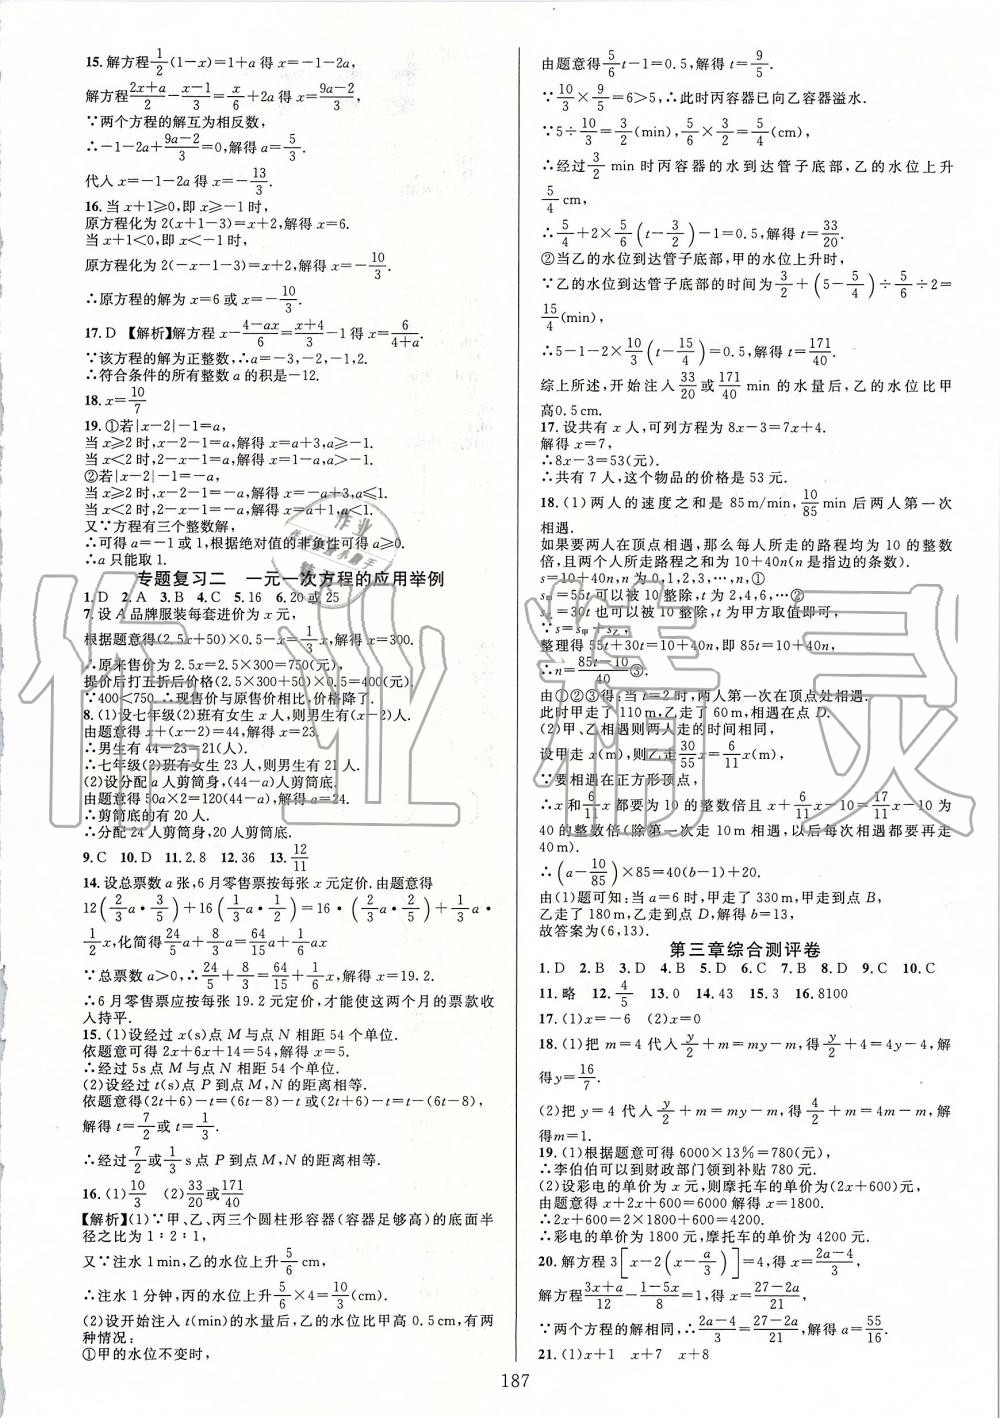 15. 解方程1/2(1-x)=1+a得x=-1-2a,
解方程(2x+a)/2-(x-1)/3=x/6+2a得x=(9a-2)/3,
∵两个方程的解互为相反数,
∴-1-2a+(9a-2)/3=0,解得a=5/3.
代入x=-1-2a得x=-13/3.
16. 当x+1≥0,即x≥-1时,
原方程化为2(x+1-3)=x+2,解得x=6.
当x+1<0,即x<-1时,
原方程化为2(-x-1-3)=x+2,解得x=-10/3.
∴原方程的解为x=6或x=-10/3.
17. D 【解析】解方程x-(4-ax)/6=(x+4)/3-1得x=6/(4+a).
∵该方程的解为正整数,∴a=-3,-2,-1,2.
∴符合条件的所有整数a的积是-12.
18. x=10/7
19. ①若|x-2|-1=a,
当x≥2时,x-2-1=a,解得x=a+3,a≥-1.
当x<2时,2-x-1=a,解得x=1-a,a>-1.
②若|x-2|-1=-a,
当x≥2时,x-2-1=-a,解得x=3-a,a≤1.
当x<2时,2-x-1=-a,解得x=a+1,a<1.
又∵方程有三个整数解,
∴可得a=-1或1,根据绝对值的非负性可得a≥0.
∴a只能取1.
专题复习二 一元一次方程的应用举例
1. D 2. A 3. B 4. C 5. 16 6. 20或25
7. 设A品牌服装每套进价为x元,
根据题意得(2.5x+50)×0.5-x=1/3x,解得x=300.
∴原来售价为2.5x=2.5×300=750(元),
提价后打五折后价格(2.5×300+50)×0.5=400(元).
∵400<750,∴现售价与原售价相比,价格降了.
8. (1)设七年级(2)班有女生x人,则男生有(x-2)人.
由题意得x+(x-2)=44,解得x=23.
∴男生有44-23=21(人).
∴七年级(2)班有女生23人,则男生有21人.
(2)设分配a人剪筒身,(44-a)人剪筒底.
由题意得50a×2=120(44-a),解得a=24.
∴剪筒底的有20人.
∴分配24人剪筒身,20人剪筒底.
9. C 10. D 11. 2.8 12. 36 13. 12/11
14. 设总票数a张,6月零售票按每张x元定价.由题意得
12(2/3a·3/5)+16(1/3a·1/2)=16·(2/3a·2/5)+1/3a·
1/2x,化简得24/5a+8/3a=64/15a+1/6ax.
∵总票数a>0,∴24/5+8/3=64/15+1/6x,解得x=19.2.
∴6月零售票应按每张19.2元定价,才能使这两个月的票款收
入持平.
15. (1)设经过x(s)点M与点N相距54个单位.
依题意可得2x+6x+14=54,解得x=5.
∴经过5s点M与点N相距54个单位.
(2)设经过t(s)点P到点M,N的距离相等.
依题意可得(2t+6)-t=(6t-8)-t或(2t+6)-t=t-(6t-8),
解得t=7/2或t=1/3.
∴经过7/2或1/3s点P到点M,N的距离相等.
16. (1)10/3 (2)33/20或171/40
【解析】(1)∵甲、乙、丙三个圆柱形容器(容器足够高)的底面半
径之比为1∶2∶1,
又∵注水1min,乙的水位上升5/6cm,
∴注水1分钟,丙的水位上升5/6×4=10/3(cm).
(2)设开始注入t(min)的水量后,乙的水位比甲高0.5cm,有两
种情况:
①甲的水位不变时,
由题意得5/6t-1=0.5,解得t=9/5.
∵10/3×9/5=6>5,∴此时丙容器已向乙容器溢水.
∵5÷10/3=3/2(min),5/6×3/2=5/4(cm),
∴经过3/2min时丙容器的水到达管子底部,乙的水位上升
5/4cm,
∴5/4+2×5/6(t-3/2)-1=0.5,解得t=33/20.
②当乙的水位到达管子底部,甲的水位上升时,
∵乙的水位到达管子底部的时间为3/2+(5-5/4)÷5/6÷2=
15/4(min),
∴5-1-2×10/3(t-15/4)=0.5,解得t=171/40.
综上所述,开始注入33/20或171/40min的水量后,乙的水位比甲
高0.5cm.
17. 设共有x人,可列方程为8x-3=7x+4.
解得x=7,
∴8x-3=53(元).
∴共有7人,这个物品的价格是53元.
18. (1)两人的速度之和是85m/min,10/85min后两人第一次
相遇.
如果要两人在顶点相遇,那么每人所走的路程均为10的整数
倍,且两人走路程之和为10+40n(n是指边的条数).
s=10+40n①
s甲=55t可以被10整除,t为2,4,6,…②
s乙=30t也可以被10整除,t为甲方取值即可,
∵s=s甲+s乙,
整理得55t+30t=10+40n,即85t=10+40n,
∴n=(85t-10)/40③.
由①②③得:当t=2时,两人第一次在顶点处相遇.
此时甲走了110m,乙走了60m,相遇在点D.
(2)甲、乙相遇则两人走的时间相同,
设甲走x(m),则乙走30/55x=6/11x(m),
∵要相遇在正方形顶点,
∴x和6/11x都要为10的整数倍且x+6/11x-10=17/11x-10为
40的整数倍(除第一次走10m相遇,以后每次相遇都要再走
40m).
∴(a-10/85)×85=40(b-1)+20.
由(1)题可知:当a=6时,甲走了330m,甲走到点B,
乙走了180m,乙走到点D,解得b=13,
故答案为(6,13).
第三章综合测评卷
1. D 2. B 3. D 4. B 5. D 6. C 7. B 8. D 9. C 10. C
11. 略 12. 4/5 13. 0 14. 43 15. 3 16. 8100
17. (1)x=-6 (2)x=0
18. (1)把m=4代入y/2+m=my-m,得y/2+4=4y-4,解
得y=16/7.
(2)把y=4代入y/2+m=my-m,得4/2+m=4m-m,解
得m=1.
19. (1)根据题意可得6000×13%=780(元).
∴李伯伯可以到财政部门领到补贴780元.
(2)设彩电的单价为x元,则摩托车的单价为(2x+600)元,
由题意得x+2x+600=6000,解得x=1800.
∴2x+600=2×1800+600=4200.
∴彩电的单价为1800元,摩托车的单价为4200元.
20. 解方程3[x-2(x-a/3)]=4,得x=(2a-4)/3,
解方程(3x+a)/12-(1-5x)/8=1,得x=(27-2a)/21,
∵两个方程的解相同,∴(2a-4)/3=(27-2a)/21,解得a=55/16.
21. (1)x+1 x+7 x+8
187
作业精灵